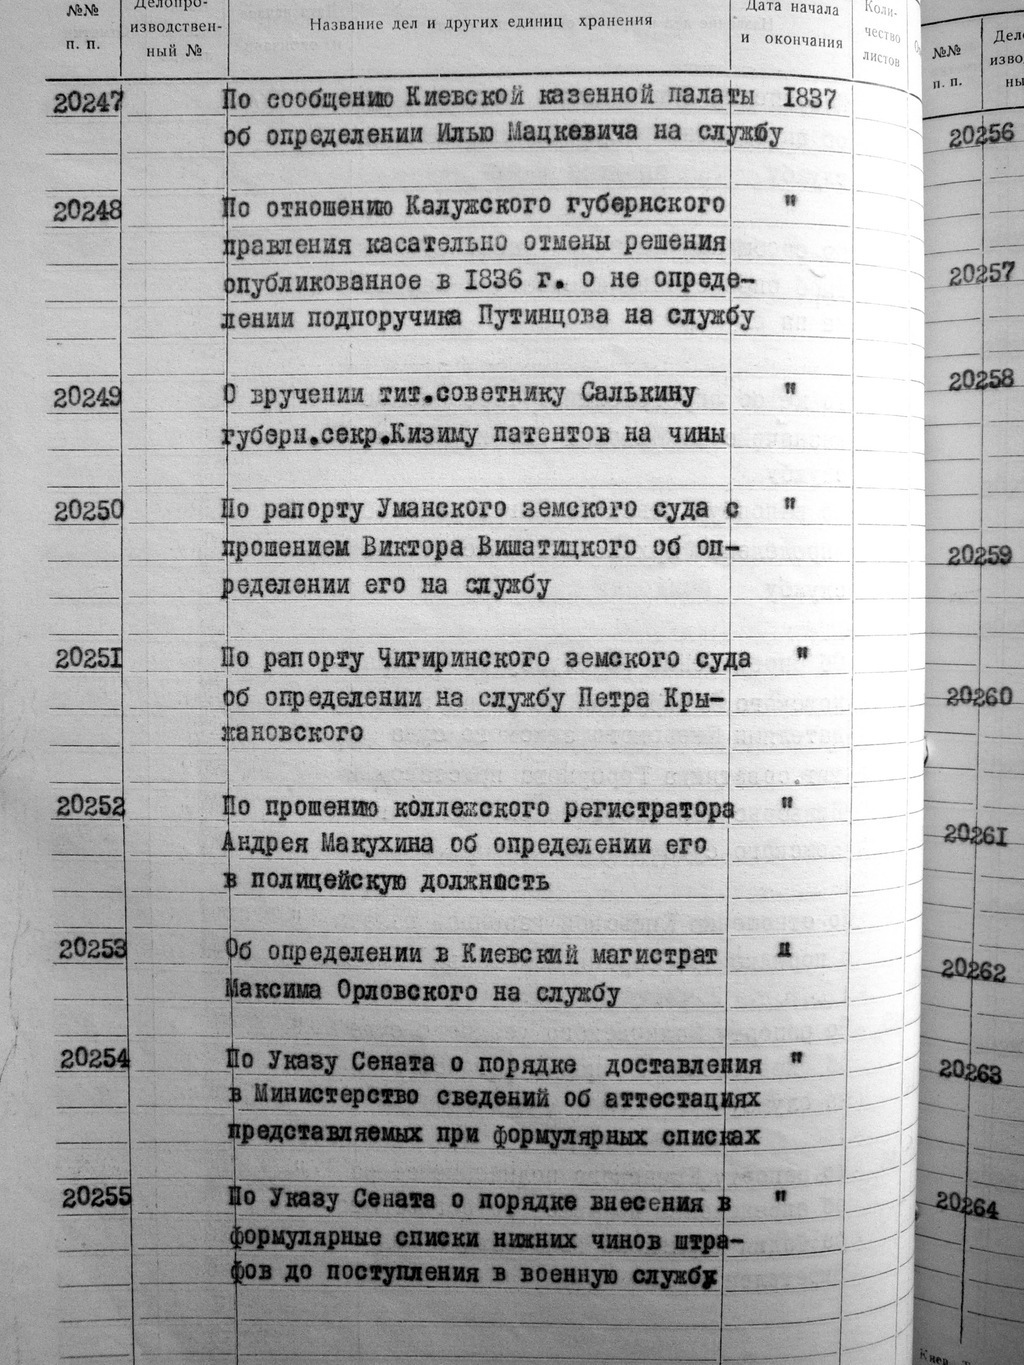 №№ п. п.
Делопро-
изводствен-
ный №
Название дел и других единиц хранения
Дата начала
и окончания
Коли-
чество
листов
20247 По сообщению Киевской казенной палаты 1837
об определении Илью Мацкевича на службу
20248 По отношению Калужского губернского "
правления касательно отмены решения
опубликованное в 1836 г. о не опреде-
лении подпоручика Путинцова на службу
20249 О вручении тит.советнику Салькину "
губерн.секр.Кизиму патентов на чины
20250 По рапорту Уманского земского суда с "
прошением Виктора Вишатицкого об оп-
ределении его на службу
20251 По рапорту Чигиринского земского суда "
об определении на службу Петра Кры-
жановского
20252 По прошению коллежского регистратора "
Андрея Макухина об определении его
в полицейскую должность
20253 Об определении в Киевский магистрат "
Максима Орловского на службу
20254 По Указу Сената о порядке доставления "
в Министерство сведений об аттестациях
представляемых при формулярных списках
20255 По Указу Сената о порядке внесения в "
формулярные списки нижних чинов штра-
фов до поступления в военную службу
№№
п. п.
20256
20257
20258
20259
20260
20261
20262
20263
20264